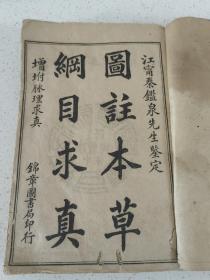 江甯秦鑑泉先生鑒定
圖註本草
綱目求真
增坿脉理求真
錦章圖書局印行